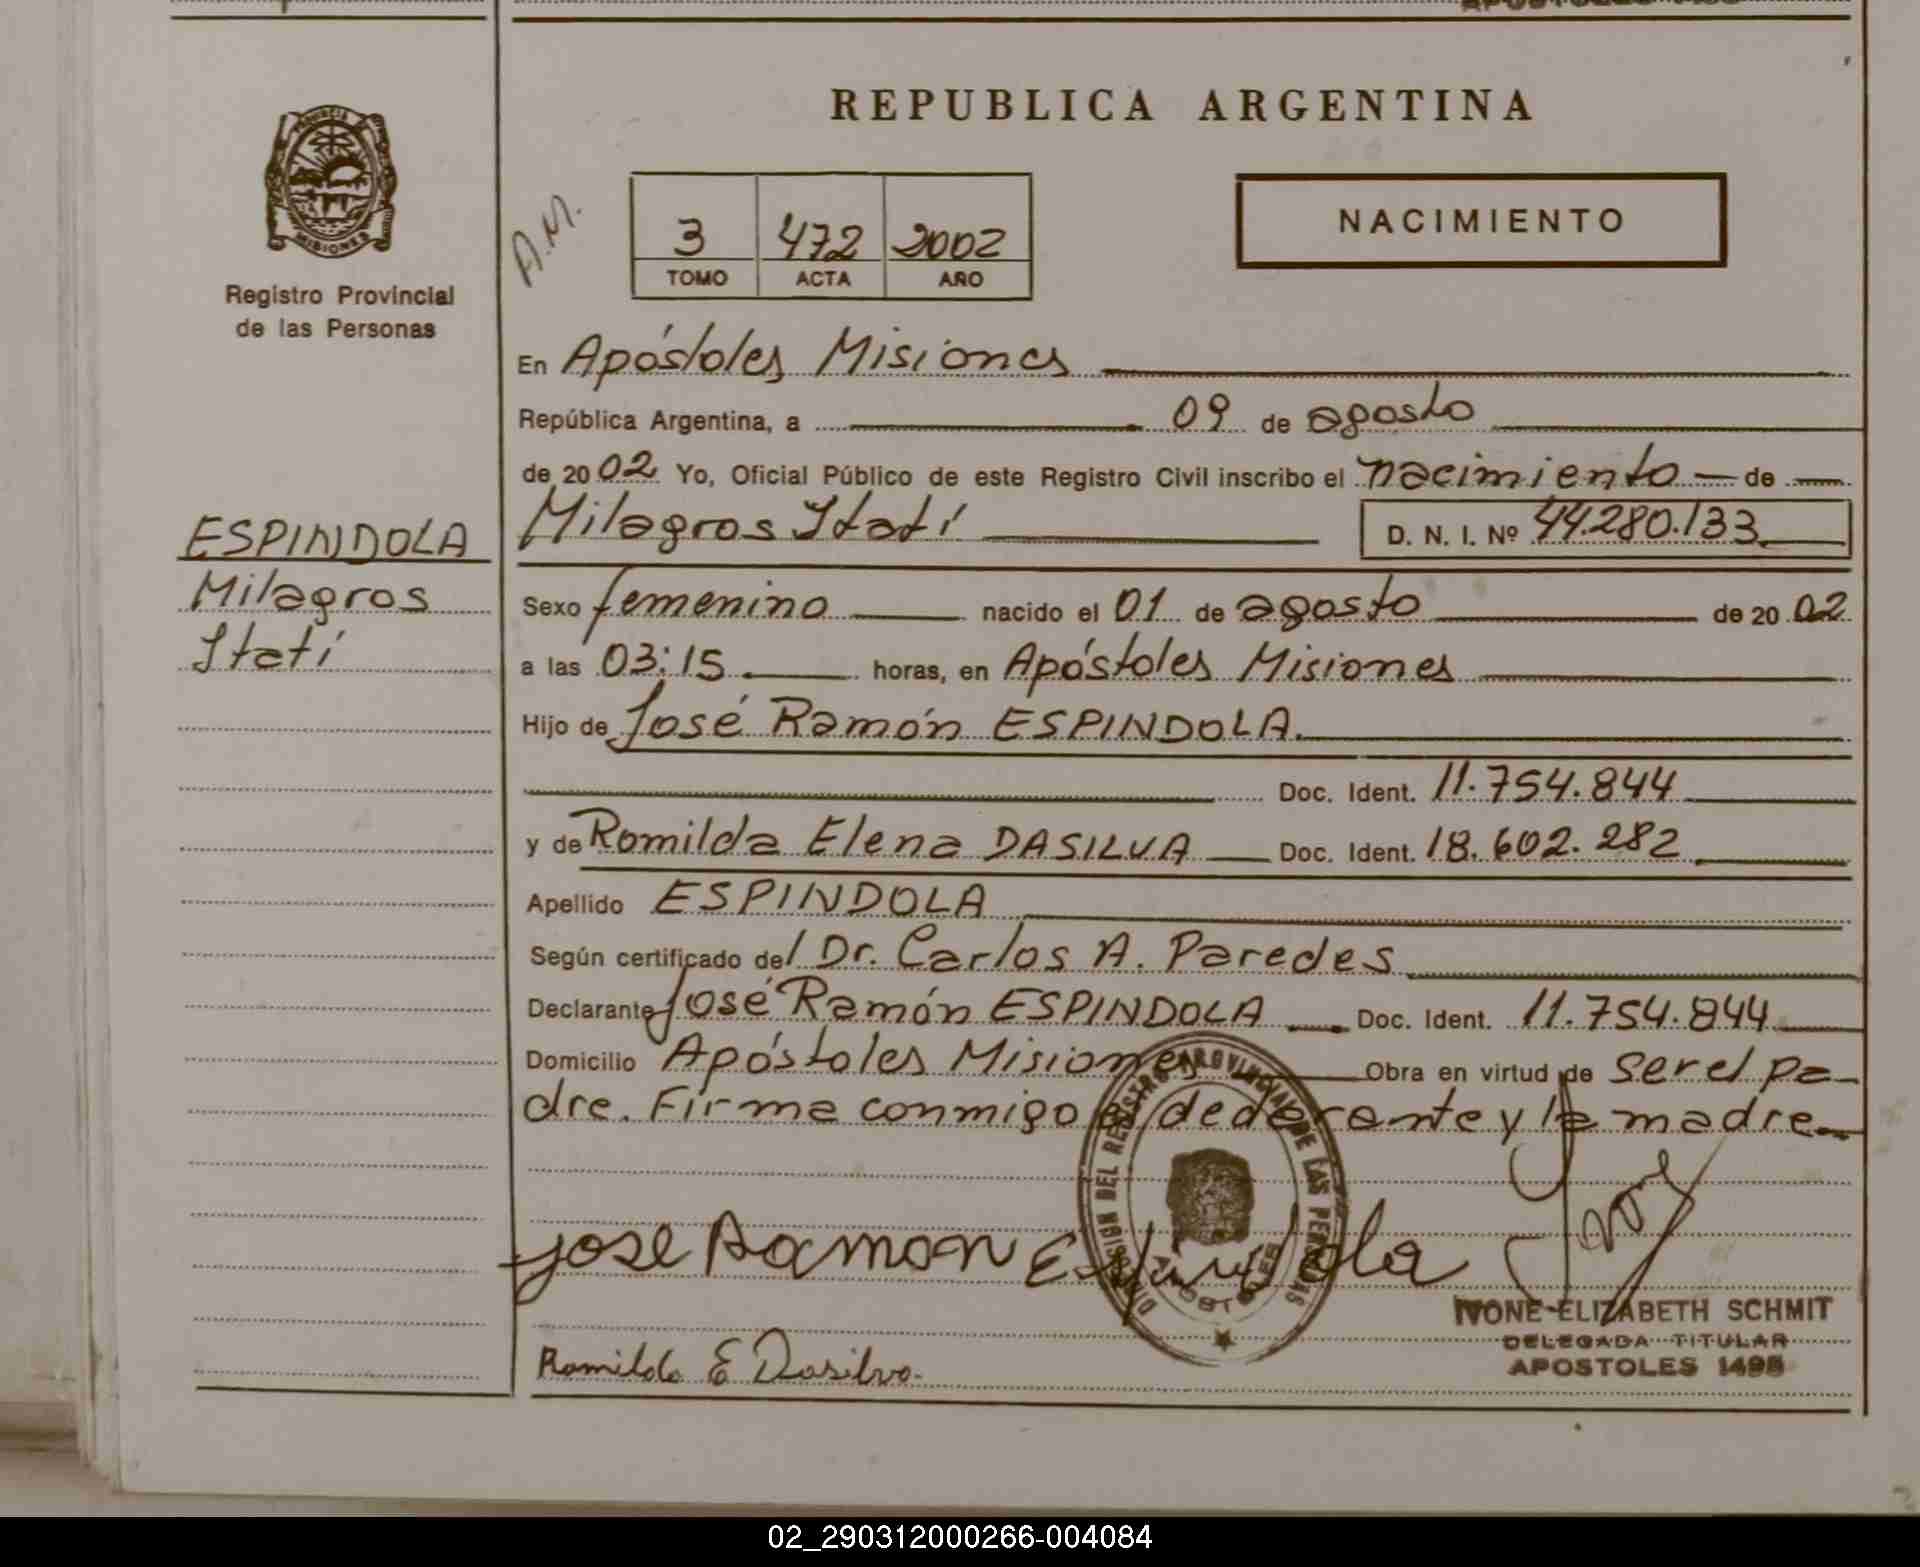 REPUBLICA ARGENTINA
PROVINCIA
MISIONES
Registro Provincial
de las Personas
A.M.
3 472 2002
TOMO ACTA AÑO
NACIMIENTO
En Apóstoles Misiones
República Argentina, a 09 de agosto
de 2002 Yo, Oficial Público de este Registro Civil inscribo el nacimiento de
ESPINDOLA
Milagros
Itatí
Milagros Itatí D. N. I. Nº 44.280.133
Sexo femenino nacido el 01 de agosto de 2002
a las 03:15 horas, en Apóstoles Misiones
Hijo de José Ramón ESPINDOLA.
Doc. Ident. 11.754.844
y de Romilda Elena DASILVA Doc. Ident. 18.602.282
Apellido ESPINDOLA
Según certificado del Dr. Carlos A. Paredes
Declarante José Ramón ESPINDOLA Doc. Ident. 11.754.844
Domicilio Apóstoles Misiones Obra en virtud de ser el pa-
dre. Firma conmigo el declarante y la madre
DIRECCION DEL REGISTRO PROVINCIAL DE LAS PERSONAS
APOSTOLES
Jose Ramon Espindola
IVONE ELIZABETH SCHMIT
DELEGADA TITULAR
APOSTOLES 1495
Romilda E Dasilva.
02_290312000266-004084